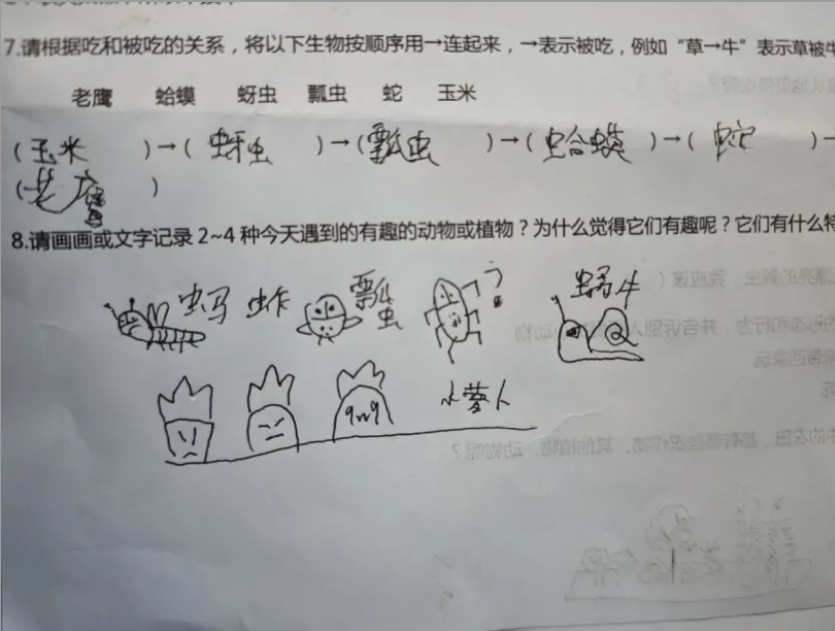 7.请根据吃和被吃的关系，将以下生物按顺序用→连起来，→表示被吃，例如“草→牛”表示草被牛
老鹰 蛤蟆 蚜虫 瓢虫 蛇 玉米
(玉米)→(蚜虫)→(瓢虫)→(蛤蟆)→(蛇)→
(老鹰)
8.请画画或文字记录2~4种今天遇到的有趣的动物或植物？为什么觉得它们有趣呢？它们有什么特
蚂蚱 瓢虫 ? 蜗牛
小萝人